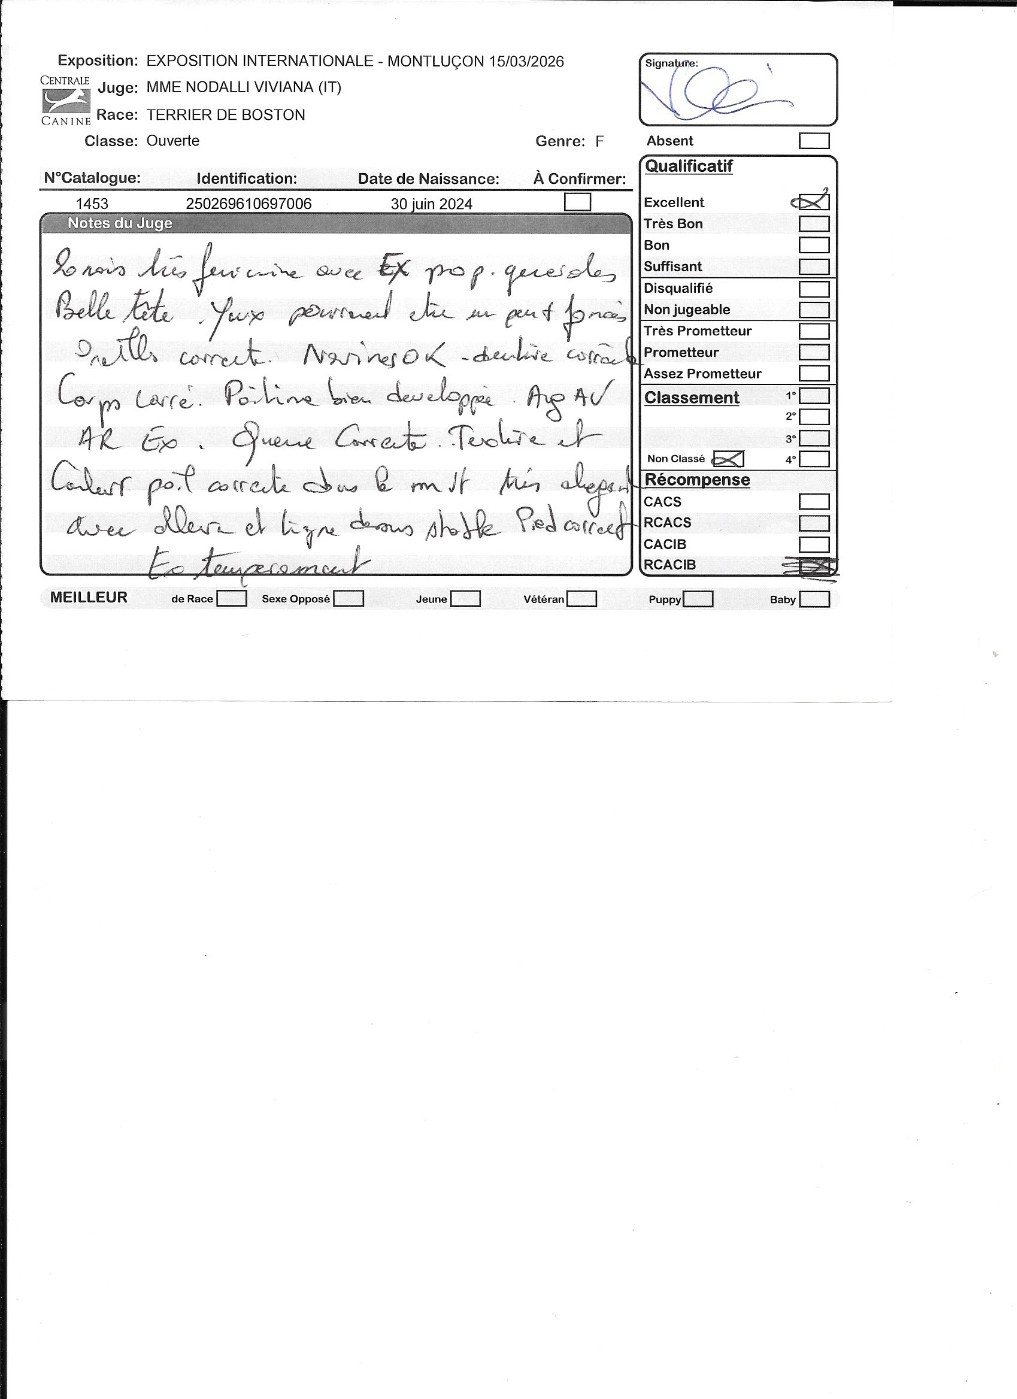 Exposition: EXPOSITION INTERNATIONALE - MONTLUÇON 15/03/2026
Signature:
CENTRALE
CANINE
Juge: MME NODALLI VIVIANA (IT)
Race: TERRIER DE BOSTON
Classe: Ouverte Genre: F
Absent
N°Catalogue: Identification: Date de Naissance: À Confirmer:
1453 250269610697006 30 juin 2024
Notes du Juge
très feminine avec EX prop. generales
Belle tête. Yeux pourraient etre un peu + foncés
Oreilles correct. Narines OK - dentire correcte
Corps carré. Poitrine bien developpée. Ang AV
AR Ex. Queue Correcte. Texture et
Couleur poil correcte dans le mvt très elegant
avec allure et ligne dessus stable Pied correct
Ex temperament
Qualificatif
Excellent
Très Bon
Bon
Suffisant
Disqualifié
Non jugeable
Très Prometteur
Prometteur
Assez Prometteur
Classement 1°
2°
3°
Non Classé 4°
Récompense
CACS
RCACS
CACIB
RCACIB
MEILLEUR de Race Sexe Opposé Jeune Vétéran Puppy Baby